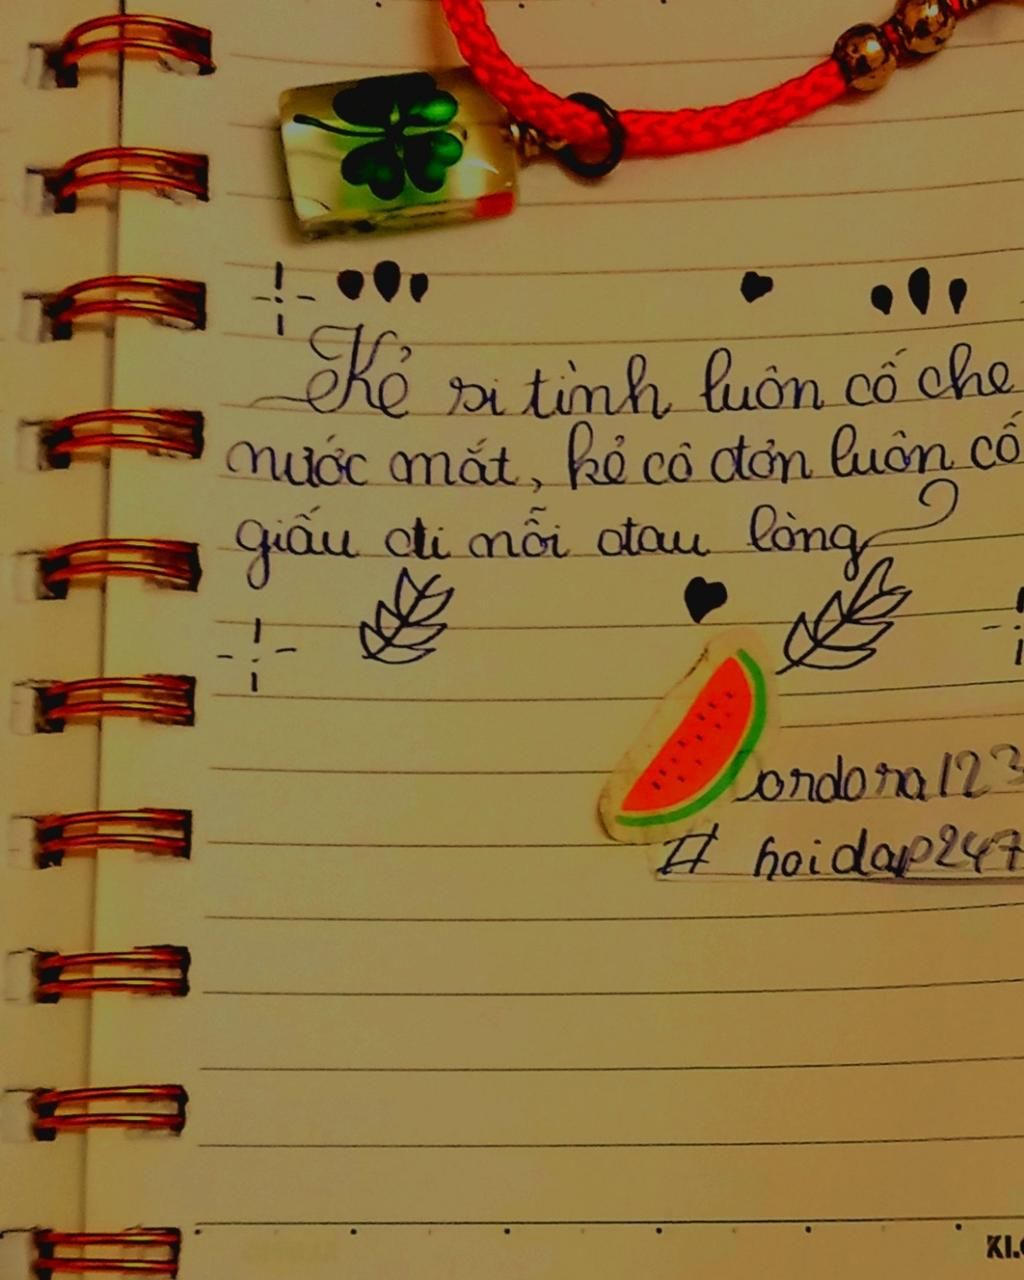 Kẻ si tình luôn cố che
nước mắt, kẻ cô đơn luôn cố
giấu đi nỗi đau lòng
ordora123
# hoidap247